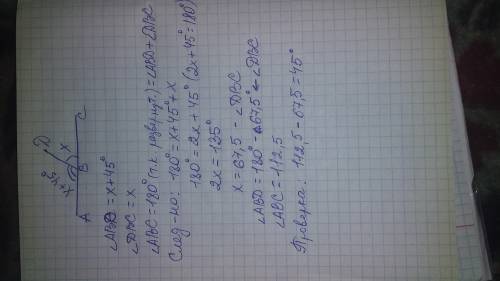 D
x+45°
x
A
B
C
∠ABD = x+45°
∠DBC = x
∠ABC = 180° (т.к. развернут.) = ∠ABD + ∠DBC
След-но: 180° = x+45°+x
180° = 2x + 45° (2x+45°=180°)
2x = 135°
x = 67,5 - ∠DBC
∠ABD = 180° - 67,5° ∠DBC
∠ABC = 112,5
Проверка: 112,5 - 67,5 = 45°